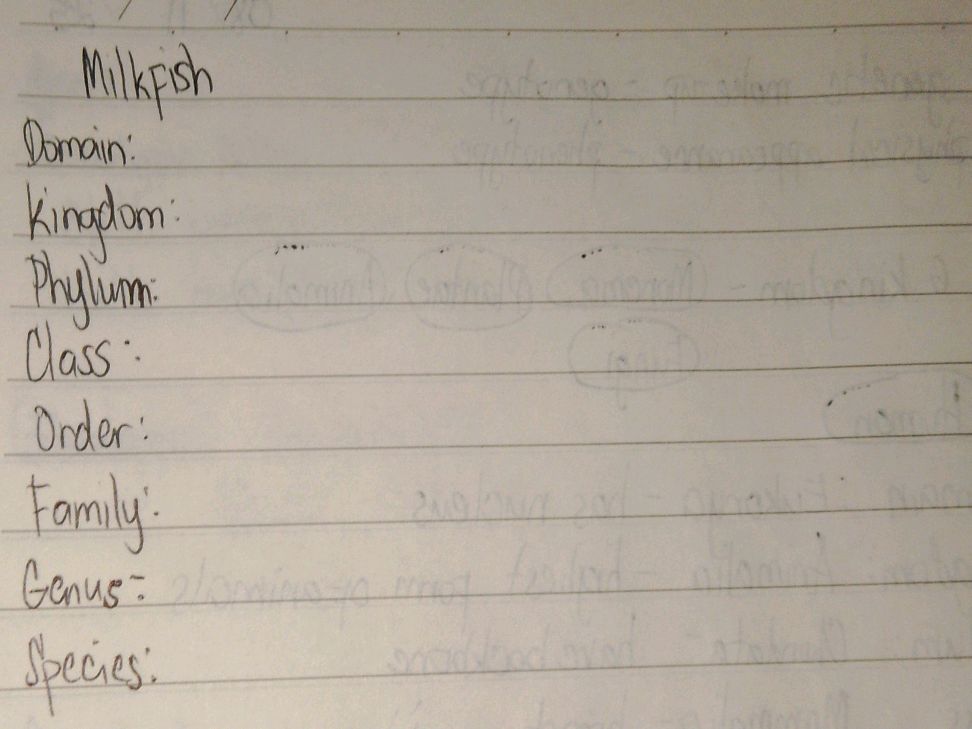 Milkfish
Domain:
Kingdom:
Phylum:
Class:
Order:
Family:
Genus:
Species: